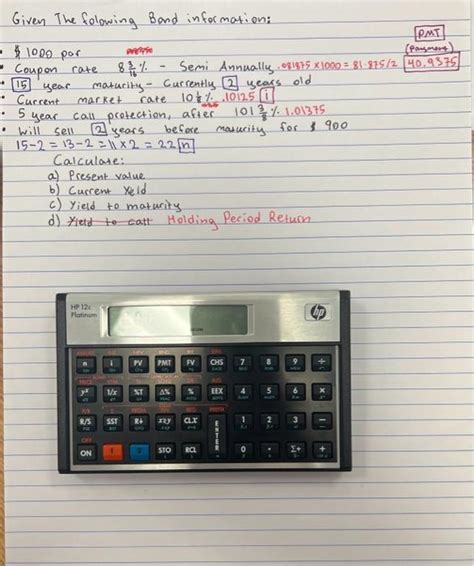 Given The folowing Bond information:
PMT
(Payment)
• $1000 par
• Coupon rate 8 3/16 % - Semi Annually .081875 x 1000 = 81.875/2 40.9375
• 15 year maturity - Currently 2 years old
• Current market rate 10 1/8 % .10125 i
• 5 year call protection, after 101 3/8 % 1.01375
• Will sell 2 years before maturity for $ 900
15-2 = 13-2 = 11 x 2 = 22 n
Calculate:
a) Present value
b) Current Yeld
c) Yield to maturity
d) Yield to call Holding Period Return
HP 12c
Platinum
hp
n i PV PMT FV CHS 7 8 9 ÷
yx 1/x %T Δ% % EEX 4 5 6 ×
R/S SST R↓ x≷y CLX ENTER 1 2 3 −
ON STO RCL 0 · Σ+ +